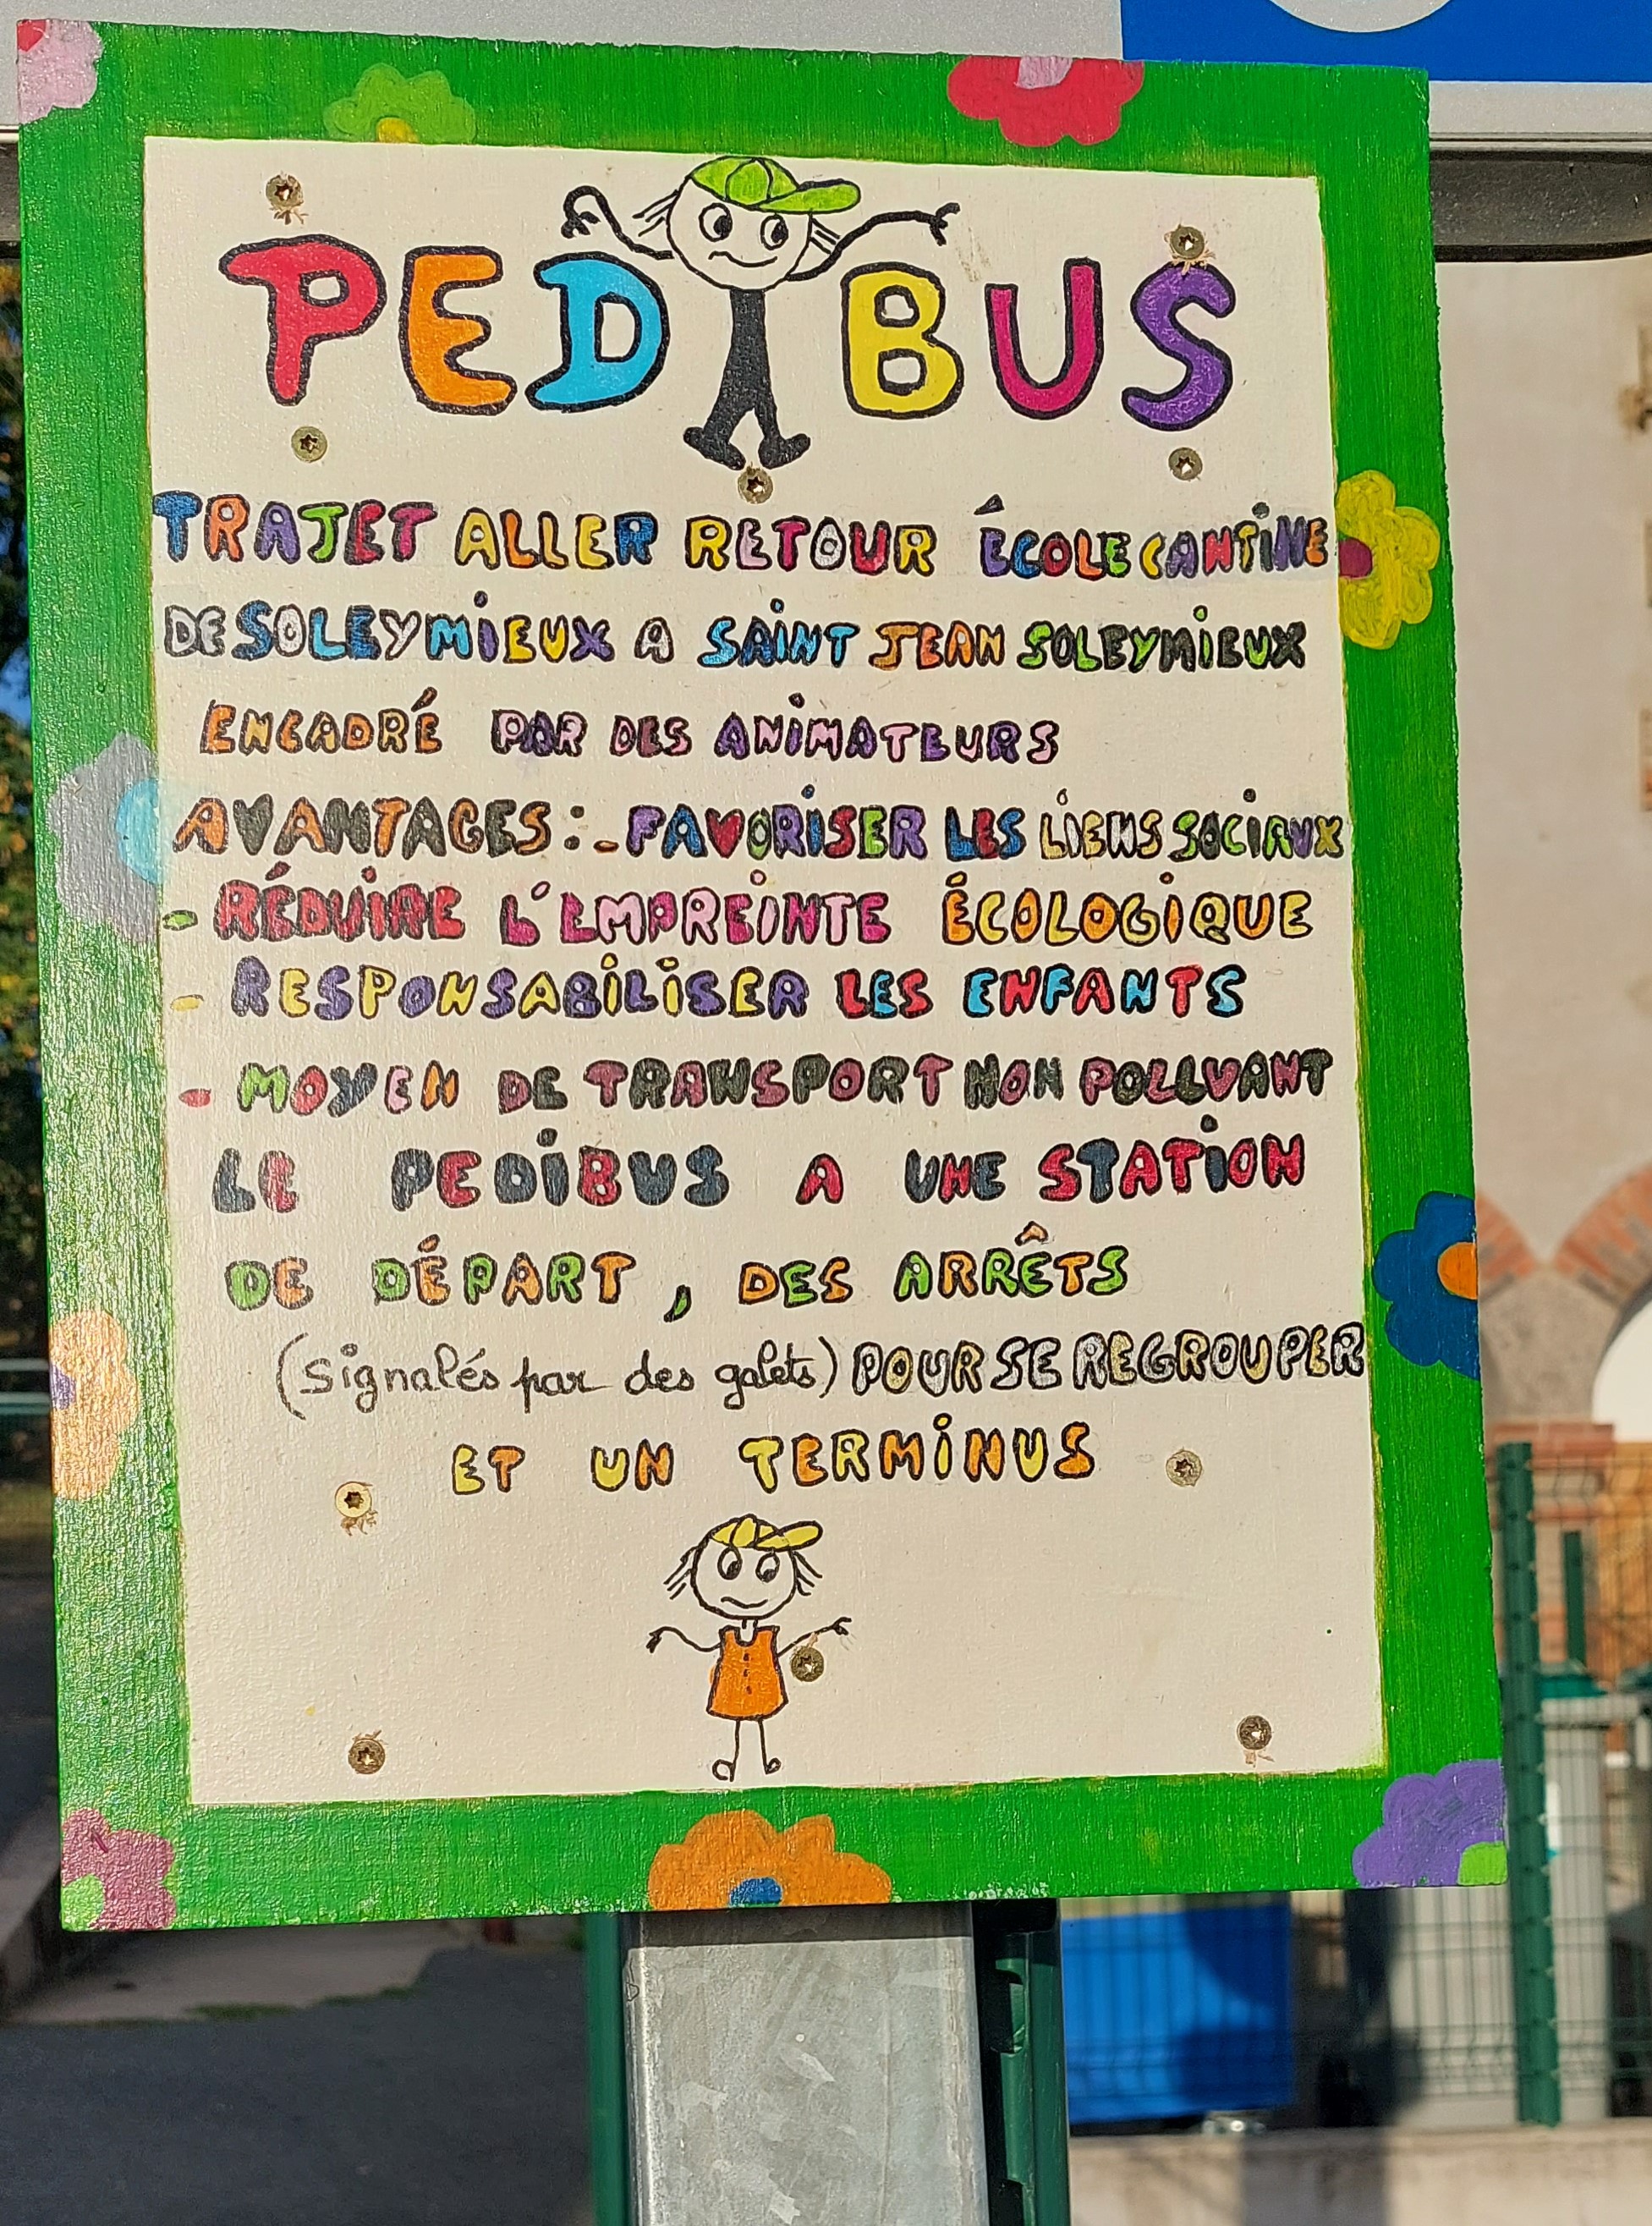 PEDIBUS
TRAJET ALLER RETOUR ÉCOLE CANTINE
DE SOLEYMIEUX A SAINT JEAN SOLEYMIEUX
ENCADRÉ PAR DES ANIMATEURS
AVANTAGES : - FAVORISER LES LIENS SOCIAUX
- RÉDUIRE L'EMPREINTE ÉCOLOGIQUE
- RESPONSABILISER LES ENFANTS
- MOYEN DE TRANSPORT NON POLLUANT
LE PEDIBUS A UNE STATION
DE DÉPART, DES ARRÊTS
(signalés par des galets) POUR SE REGROUPER
ET UN TERMINUS